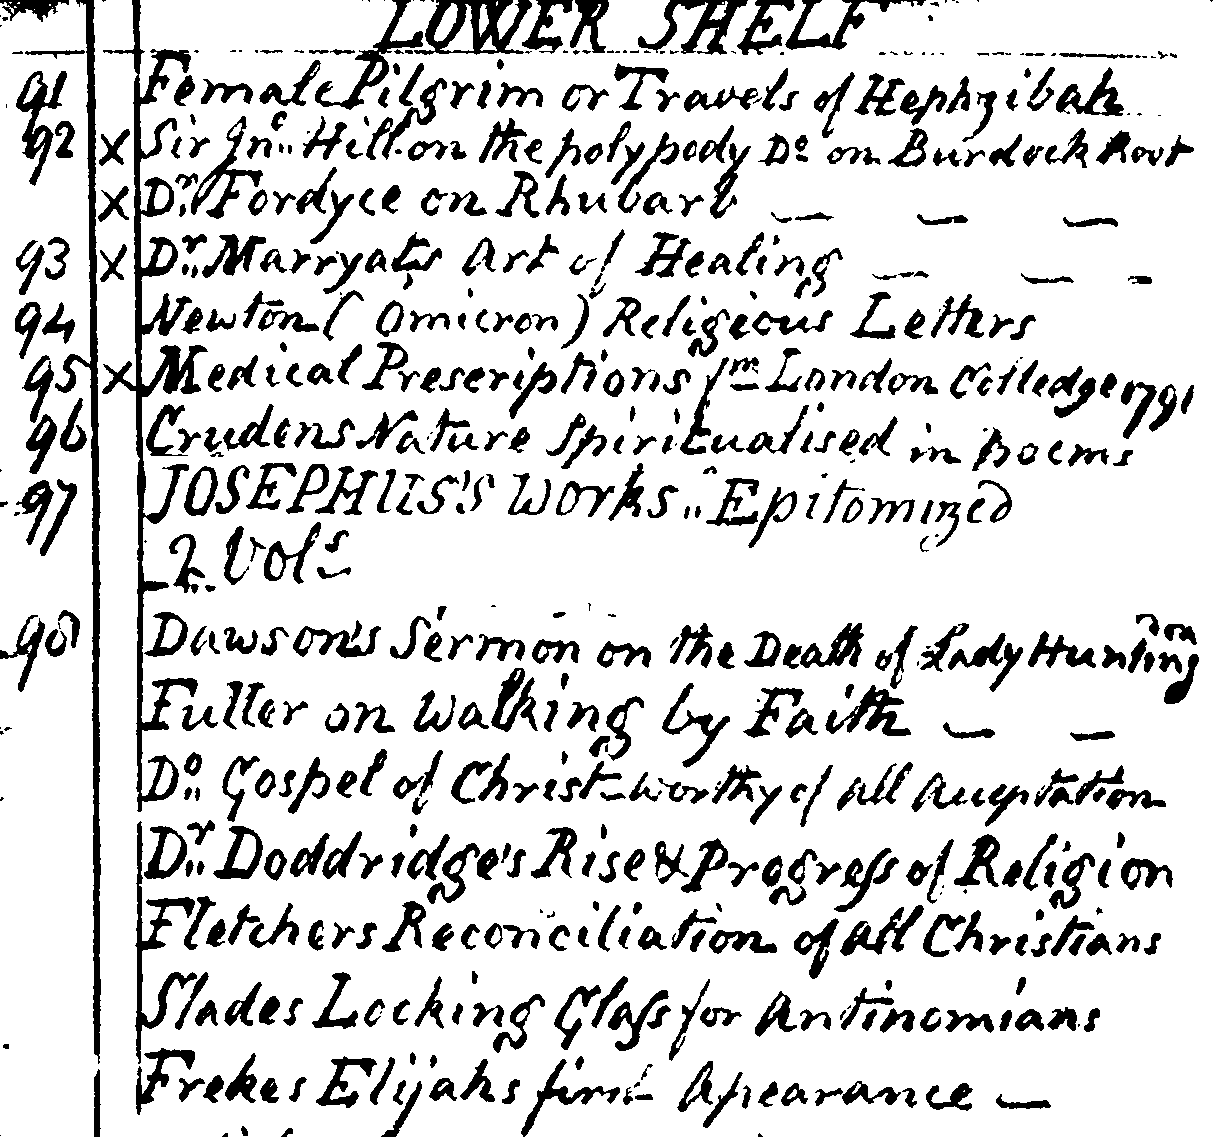 LOWER SHELF
91 Female Pilgrim or Travels of Hephzibah
92 X Sir Jnº.. Hill on the polypody Dº on Burdock Root
X Dr.. Fordyce on Rhubarb — — —
93 X Dr.. Marryats Art of Healing — — -
94 Newton (Omicron) Religious Letters
95 X Medical Prescriptions fm London Colledge 1791
96 Crudens Nature Spiritualised in Poems
97 JOSEPHUS'S Works.. Epitomized
2 Vols
98 Dawson's Sermon on the Death of Lady Huntingdon
Fuller on Walking by Faith — —
Dº.. Gospel of Christ worthy of all Aueptation
Dr.. Doddridge's Rise & Progress of Religion
Fletchers Reconciliation of all Christians
Slades Locking Glass for Antinomians
Frekes Elijahs first Apearance —